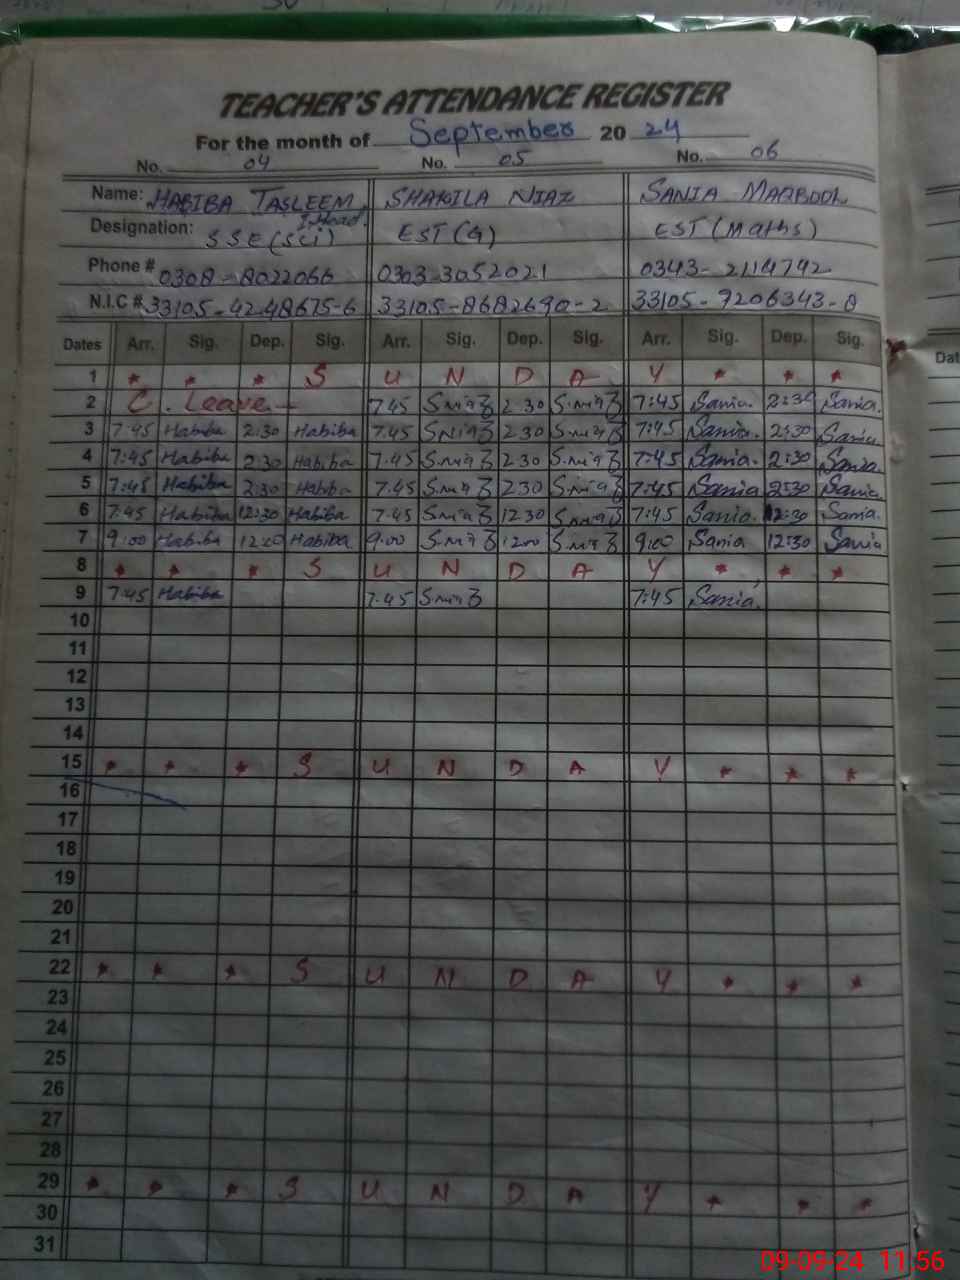 TEACHER'S ATTENDANCE REGISTER
For the month of September 20 24
No. 04 No. 05 No. 06
Name: HABIBA TASLEEM SHAKILA NIAZ SANIA MAQBOOL
I.Head.
Designation: SSE (Sci) EST (G) EST (Maths)
Phone # 0308-8022066 0303-3052021 0343-2114792
N.I.C # 33105-4248675-6 33105-8682690-2 33105-9206343-8
Dates Arr. Sig. Dep. Sig. Arr. Sig. Dep. Sig. Arr. Sig. Dep. Sig.
1 * * * S U N D A Y * * *
2 C. Leave 7.45 2.30 7:45 Sania. 2:30 Sania.
3 7:45 Habiba 2:30 Habiba 7.45 2.30 7:45 Sania. 2:30 Sania
4 7:45 Habiba 2:30 Habiba 7.45 2.30 7:45 Sania. 2:30 Sania
5 7:45 Habiba 2:30 Habiba 7.45 2.30 7:45 Sania 2:30 Sania
6 7:45 Habiba 12:30 Habiba 7.45 12.30 7:45 Sania. 12:30 Sania.
7 9:00 Habiba 12:00 Habiba 9.00 12.00 9:00 Sania 12:30 Sania
8 * * * S U N D A Y * * *
9 7:45 Habiba 7.45 7:45 Sania
10
11
12
13
14
15 * * * S U N D A Y * * *
16
17
18
19
20
21
22 * * * S U N D A Y * * *
23
24
25
26
27
28
29 * * * S U N D A Y * * *
30
31
Dat
09-09-24 11:56